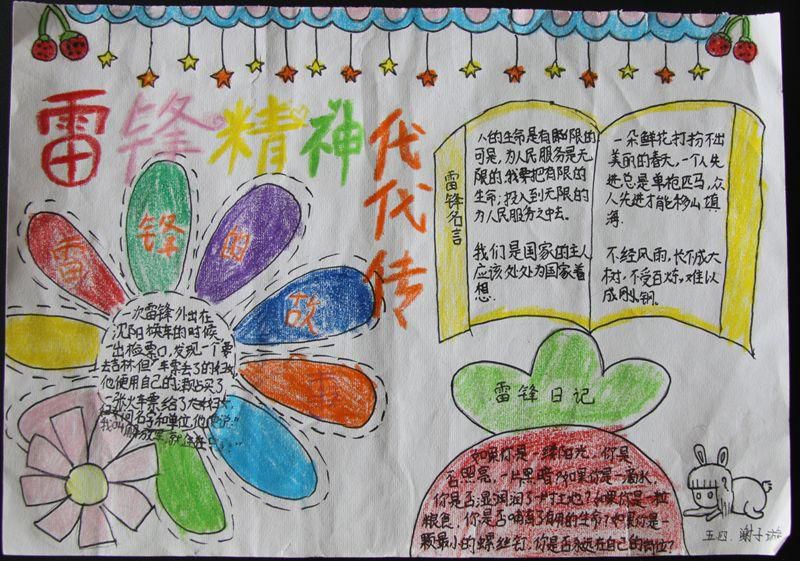 雷锋精神代代传
雷锋的故事
一次雷锋外出在
沈阳换车的时候
一出检票口,发现一个
去吉林但车票丢了的妇女
他便用自己的津贴买了
一张火车票给了大嫂
名字和单位,他便说:
我叫解放军就住在
雷锋名言
人的生命是有限的
可是,为人民服务是无
限的,我要把有限的
生命;投入到无限的
为人民服务之中去。
我们是国家的主人
应该处处为国家着
想。
一朵鲜花打扮不出
美丽的春天,一个人先
进总是单枪匹马,众
人先进才能移山填
海。
不经风雨,长不成大
树,不受百炼,难以
成刚钢。
雷锋日记
如果你是一缕阳光,你是
否照亮了一片黑暗?如果你是一滴水,
你是否湿润润了一寸土地?如果你是一粒
粮食,你是否哺育了有用的生命?如果你是一
颗最小的螺丝钉,你是否永远在自己的岗位?
五四.谢子